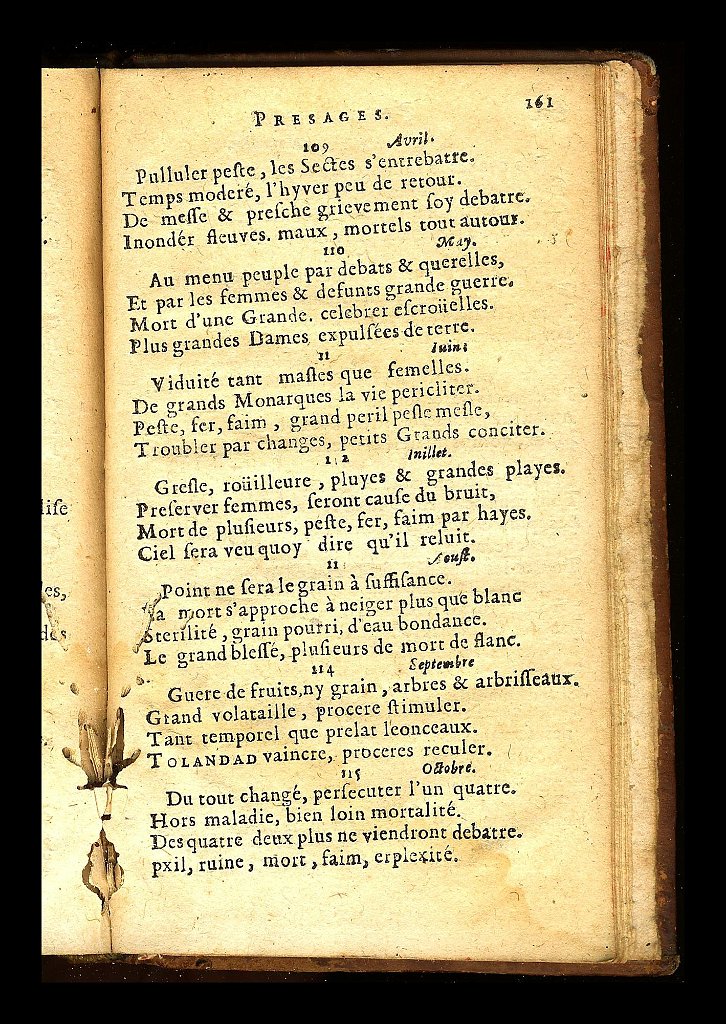 PRESAGES.
161
109 Avril.
Pulluler peſte, les Sectes s'entrebatre.
Temps moderé, l'hyver peu de retour.
De meſſe & preſche grievement ſoy debatre.
Inondér fleuves. maux, mortels tout autour.
110 May.
Au menu peuple par debats & querelles,
Et par les femmes & defunts grande guerre.
Mort d'une Grande. celebrer eſcroüelles.
Plus grandes Dames expulſées de terre.
11 Iuin:
Viduité tant maſles que femelles.
De grands Monarques la vie pericliter.
Peſte, fer, faim, grand peril peſle meſle,
Troubler par changes, petits Grands conciter.
112 Inillet.
Greſle, roüilleure, pluyes & grandes playes.
Preſerver femmes, ſeront cauſe du bruit,
Mort de pluſieurs, peſte, fer, faim par hayes.
Ciel ſera veu quoy dire qu'il reluit.
liſe
11 Aouſt.
Point ne ſera le grain à ſuffiſance.
es,
a mort s'approche à neiger plus que blanc
des
Sterilité, grain pourri, d'eau bondance.
Le grand bleſſé, pluſieurs de mort de flanc.
114 Septembre
Guere de fruits, ny grain, arbres & arbriſſeaux.
Grand volataille, procere ſtimuler.
Tant temporel que prelat leonceaux.
TOLANDAD vaincre, proceres reculer.
115 Octobre.
Du tout changé, perſecuter l'un quatre.
Hors maladie, bien loin mortalité.
Des quatre deux plus ne viendront debatre.
pxil, ruine, mort, faim, erplexité.